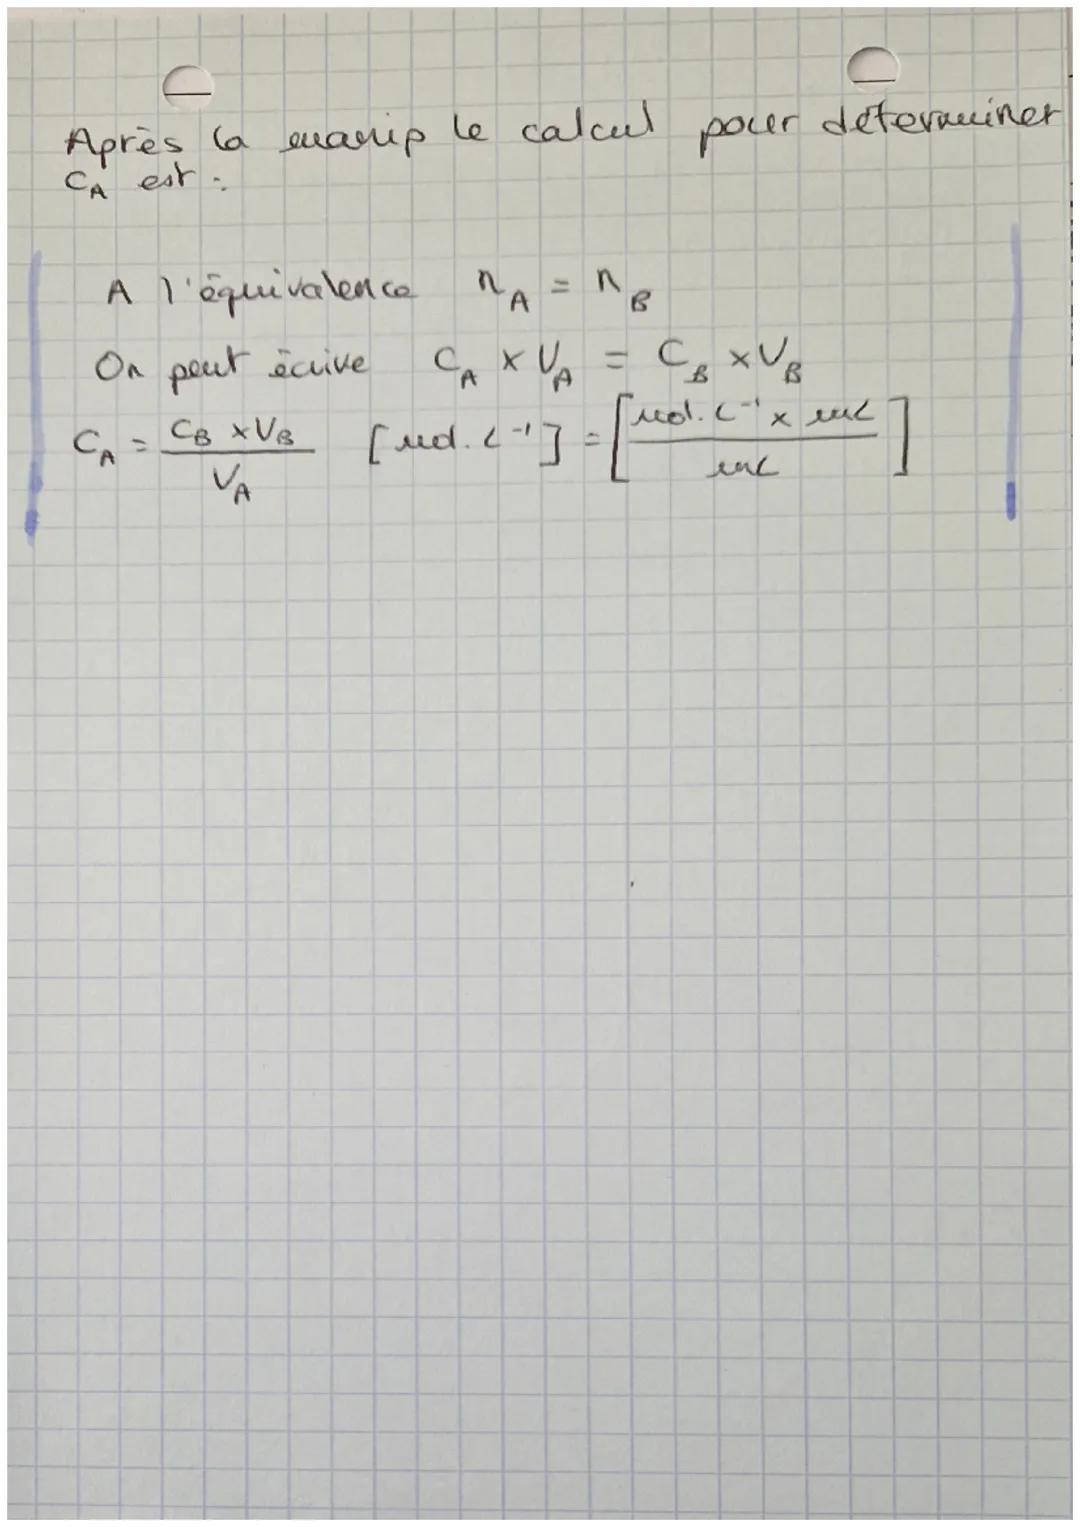 Après la manip le calcul pour déterminer
CA est :
A l'équivalence nA = nB
On peut écrire CA x VA = CB x VB
CA = CB x VB / VA [mol.L⁻¹] = [mol.L⁻¹ x mL / mL]